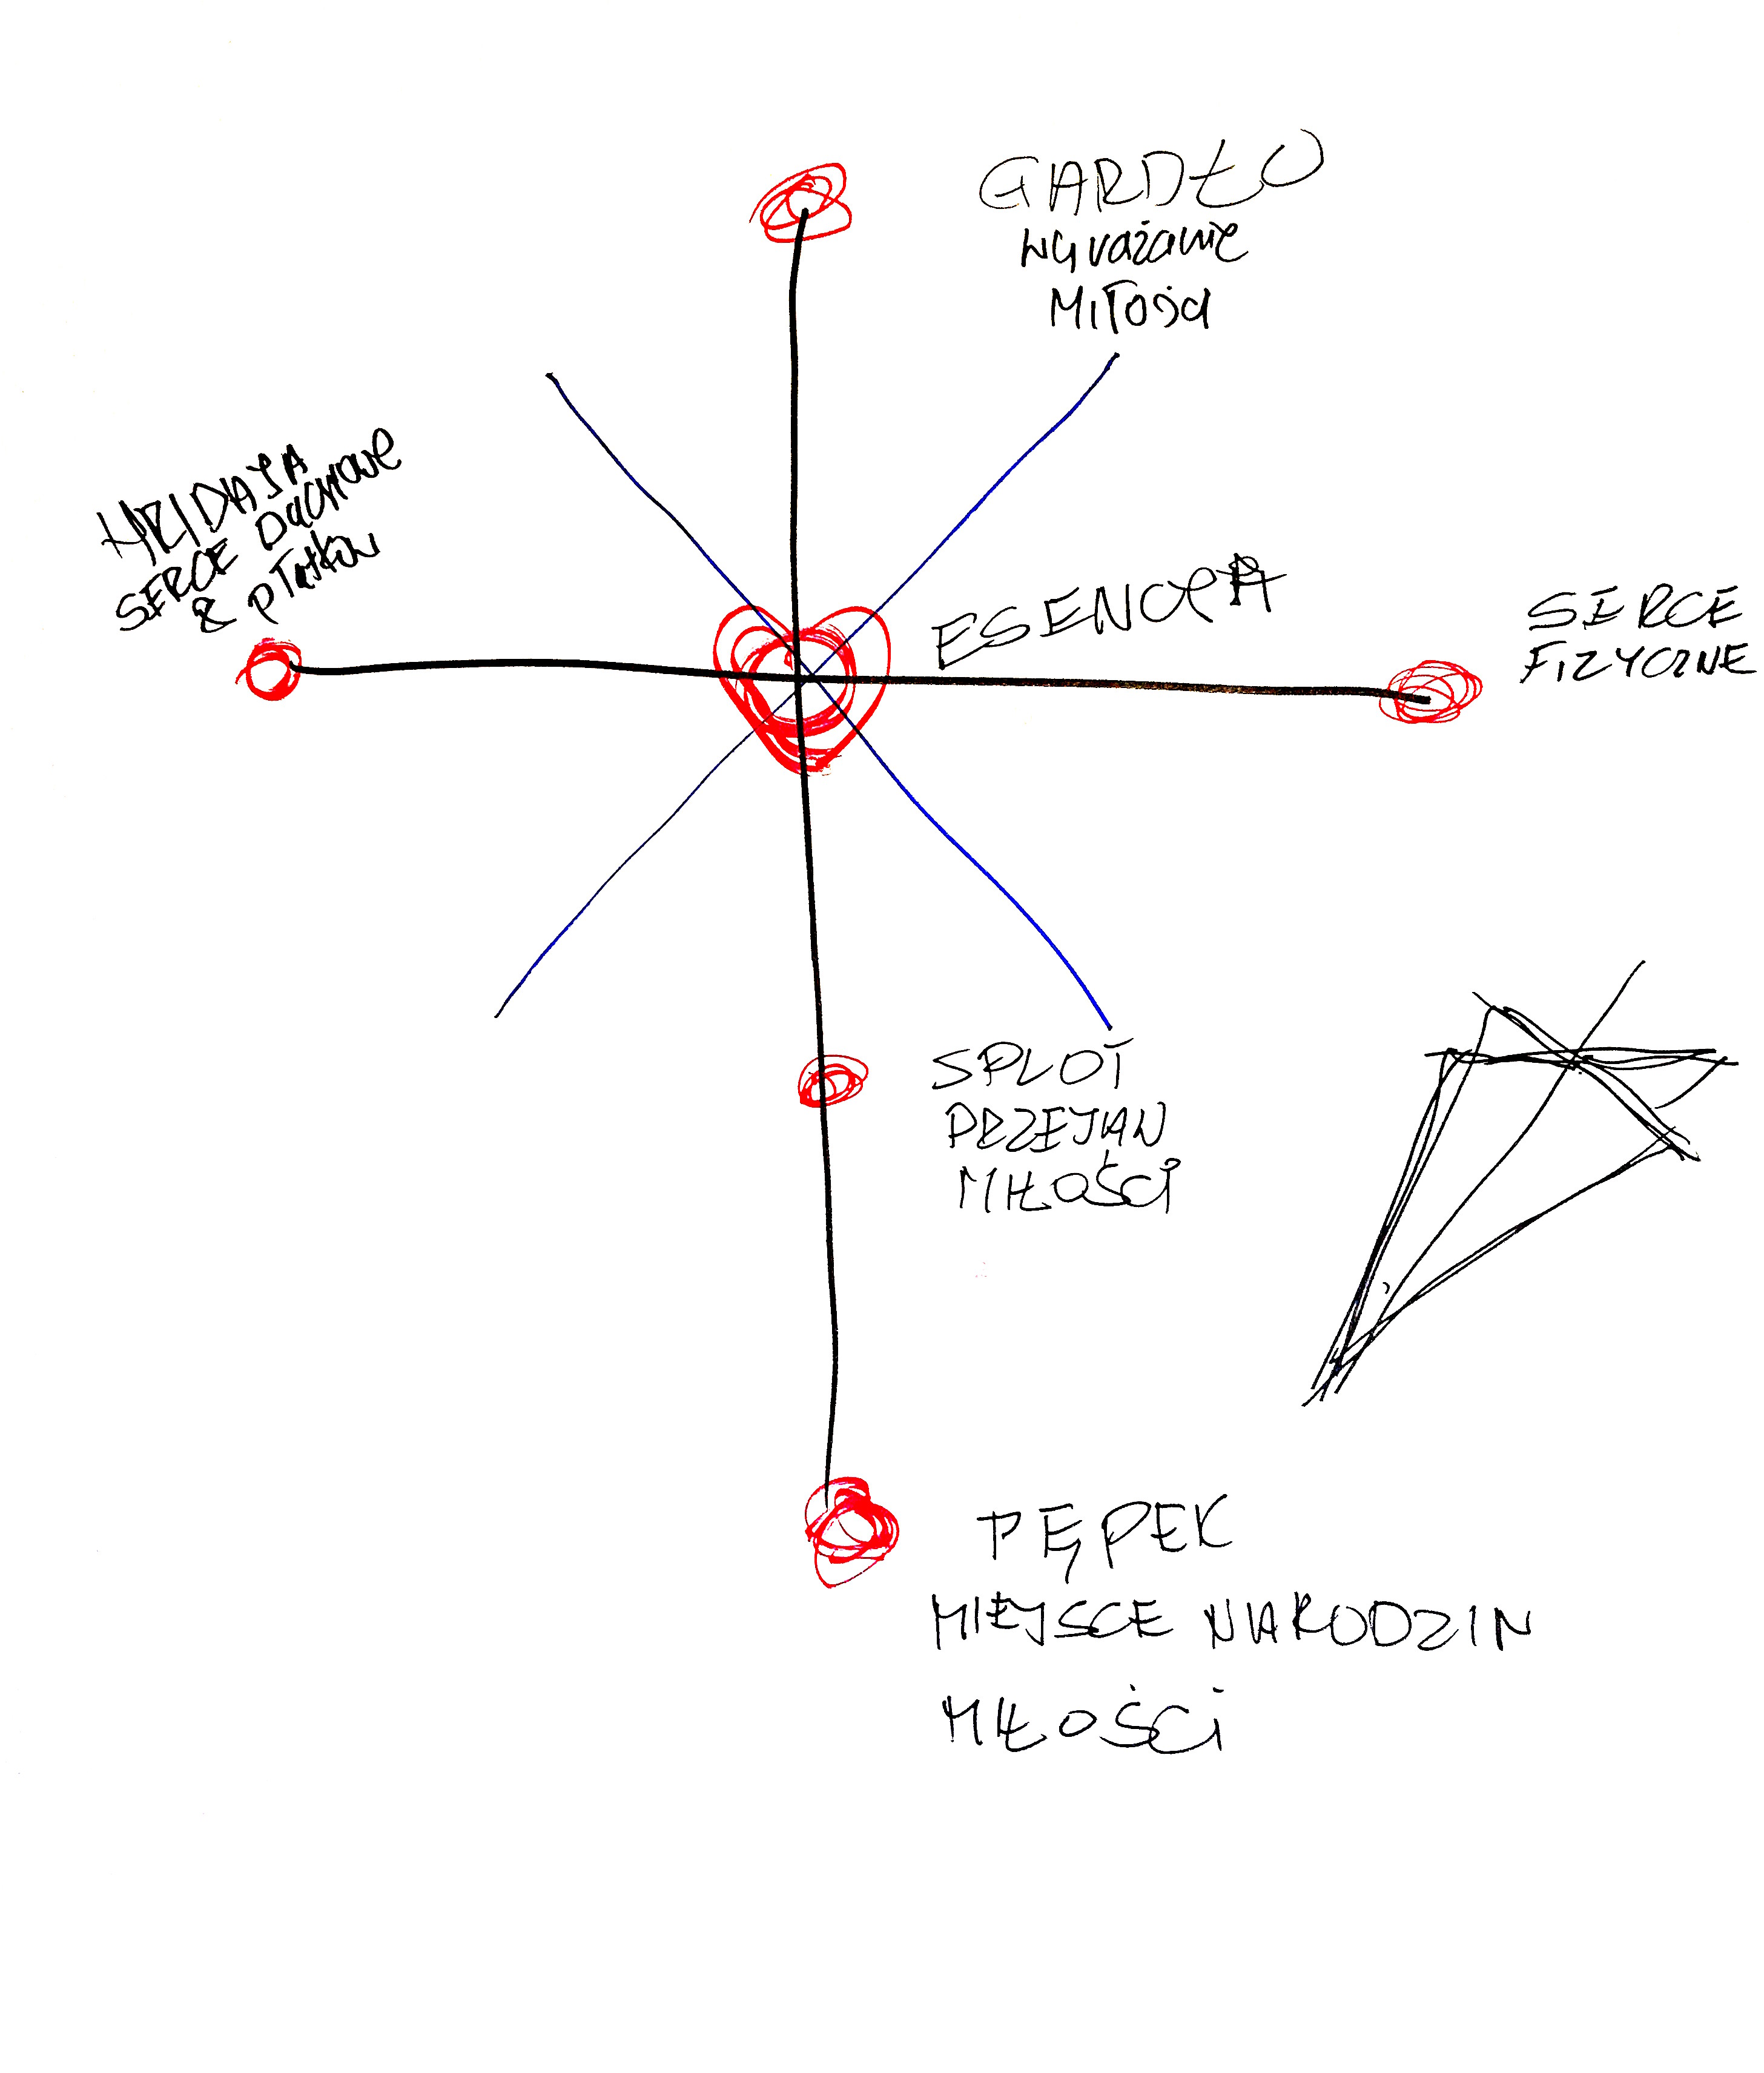 GARDŁO
wyrażanie
Miłości
HRIDAJA
SERCE DUCHOWE
8 płatków
ESENCJA
SERCE
FIZYCZNE
SPLOT
PRZEJAW
MIŁOŚCI
PĘPEK
MIEJSCE NARODZIN
MIŁOŚCI